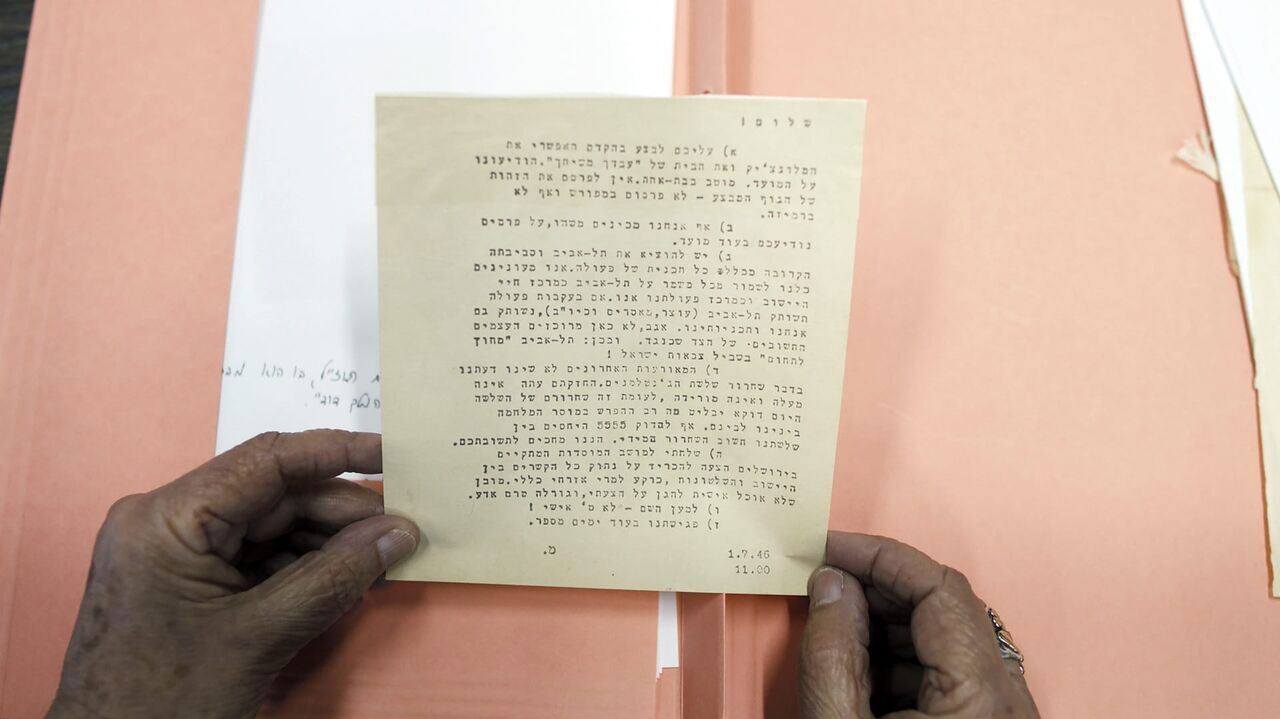 ש ל ו ם !
א) עליכם לבצע בהקדם האפשרי את
המלונצ'יק ואת הבית של "עבדך משיחך".הודיעונו
על המועד. מוטב בבת-אחת.אין לפרסם את הזהות
של הגוף המבצע - לא פרסום במפורש ואף לא
ברמיזה.
ב) אף אנחנו מכינים משהו,על פרטים
נודיעכם בעוד מועד.
ג) יש להוציא את תל-אביב וסביבתה
הקרובה מכלל כל תכנית של פעולה.אנו מעונינים
כלנו לשמור מכל משמר על תל-אביב כמרכז חיי
הישוב וכמרכז פעולתנו אנו.אם בעקבות פעולה
תשותק תל-אביב (עוצר,מאסרים וכיו"ב),נשותק גם
אנחנו ותכניותינו. אגב,לא כאן מרוכזים העצמים
החשובים של הצד שכנגד. ובכן: תל-אביב "מחוץ
לתחום" בשביל צבאות ישראל !
ד) המאורעות האחרונים לא שינו דעתנו
בדבר שחרור שלשת הג'נטלמנים.החזקתם עתה אינה
מעלה ואינה מורידה ,לעומת זה שחרורם של השלשה
היום דוקא יבליט מה רב ההפרש במוסר המלחמה
בינינו לבינם. אף להדוק 5555 היחסים בין
שלשתנו חשוב השחרור המידי. הננו מחכים לתשובתכם.
ה) שלחתי למושב המוסדות המחקיים
בירושלים הצעה להכריז על נתוק כל הקשרים בין
הישוב והשלטונות ,כרקע למרי אזרחי כללי.מובן
שלא אוכל אישית להגן על הצעתי,וגורלה טרם אדע.
ו) למען השם - לא מ' אישי !
ז) פגישתנו בעוד ימים מספר.
1.7.46 מ.
11.00
בו הוא
המלך דוד".